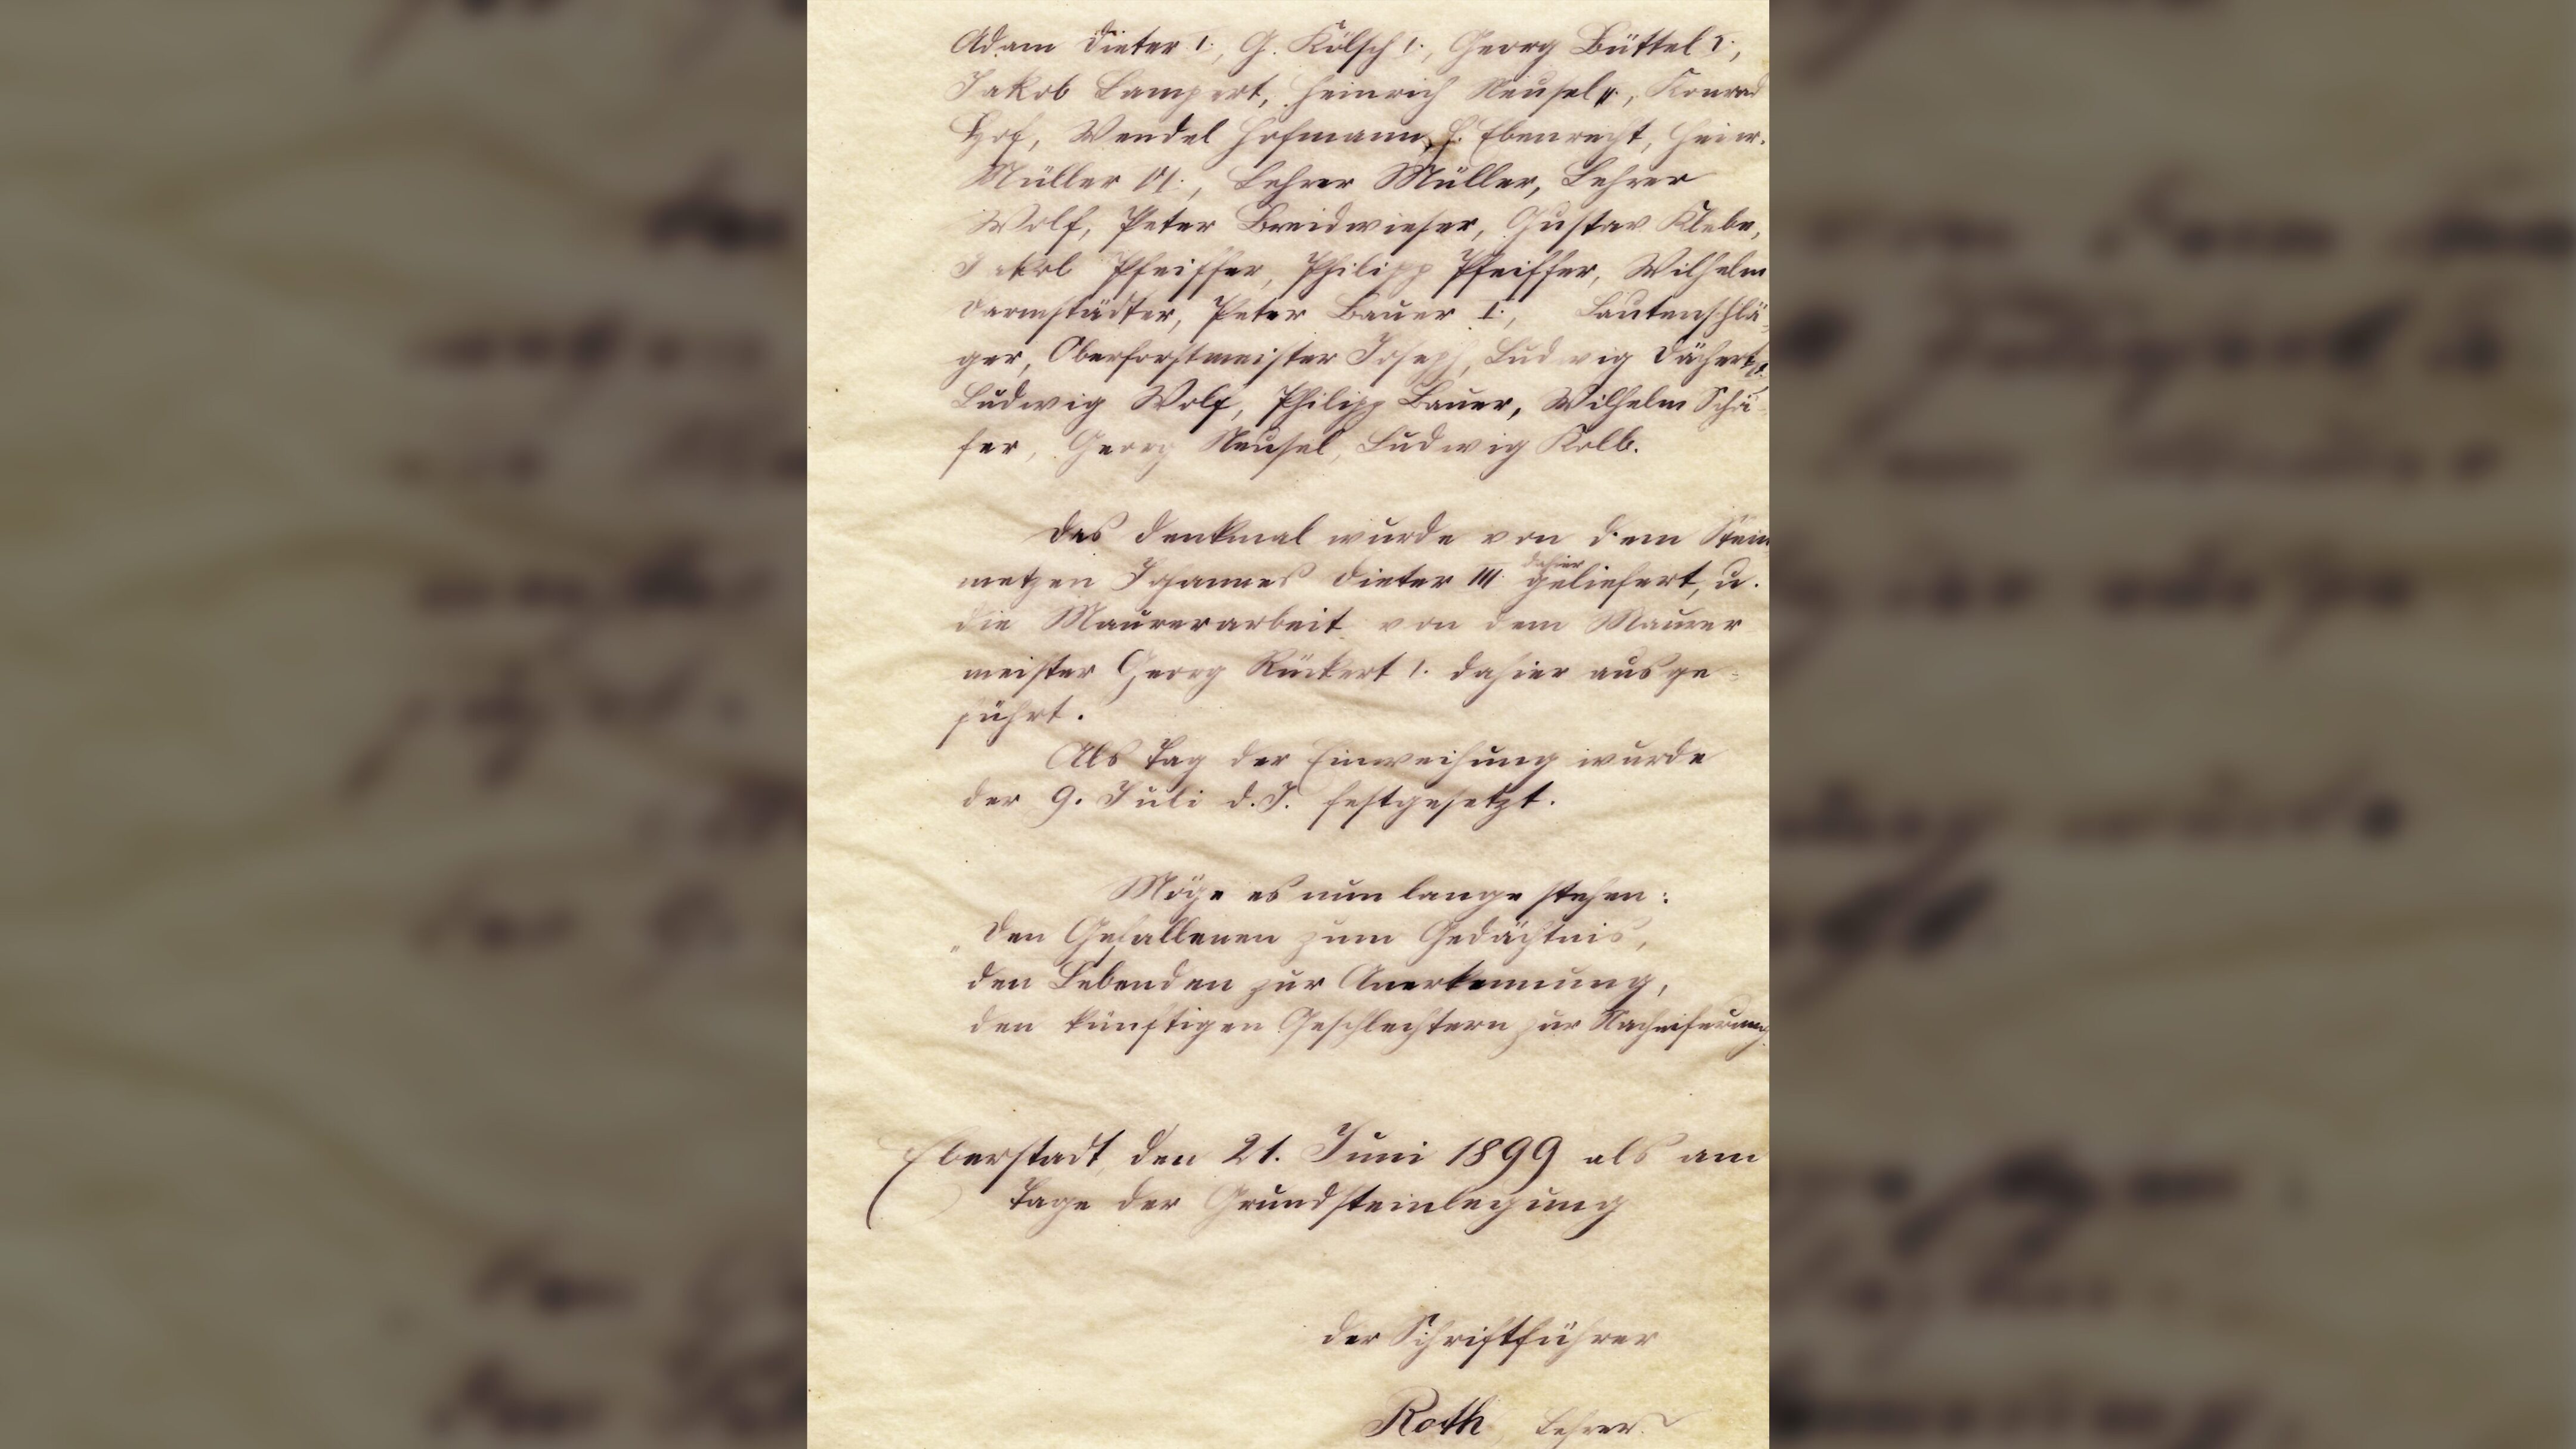 Adam Dieter I., G. Kölsch I., Georg Büttel I.,
Jakob Lampert, Heinrich Neusel II., Konrad
Hof, Wendel Hofmann, H. Ebenrecht, Heinr.
Müller VI., Lehrer Müller, Lehrer
Wolf, Peter Breidwieser, Gustav Klebe,
Jakob Pfeiffer, Philipp Pfeiffer, Wilhelm
Darmstädter, Peter Bauer I., Lautenschlä-
ger, Oberforstmeister Joseph, Ludwig Dächert
Ludwig Wolf, Philipp Bauer, Wilhelm Schä-
fer, Georg Neusel, Ludwig Kolb.
Das Denkmal wurde von dem Stein
dahier
metzen Johannes Dieter III. geliefert, u.
die Maurerarbeit von dem Maurer
meister Georg Rückert I. dahier ausge-
führt.
Als Tag der Einweihung wurde
der 9. Juli d. J. festgesetzt.
Möge es nun lange stehen:
„Den Gefallenen zum Gedächtnis,
den Lebenden zur Anerkennung,
den künftigen Geschlechtern zur Nacheiferung
Eberstadt, den 21. Juni 1899 als am
Tage der Grundsteinlegung
Der Schriftführer
Roth, Lehrer.